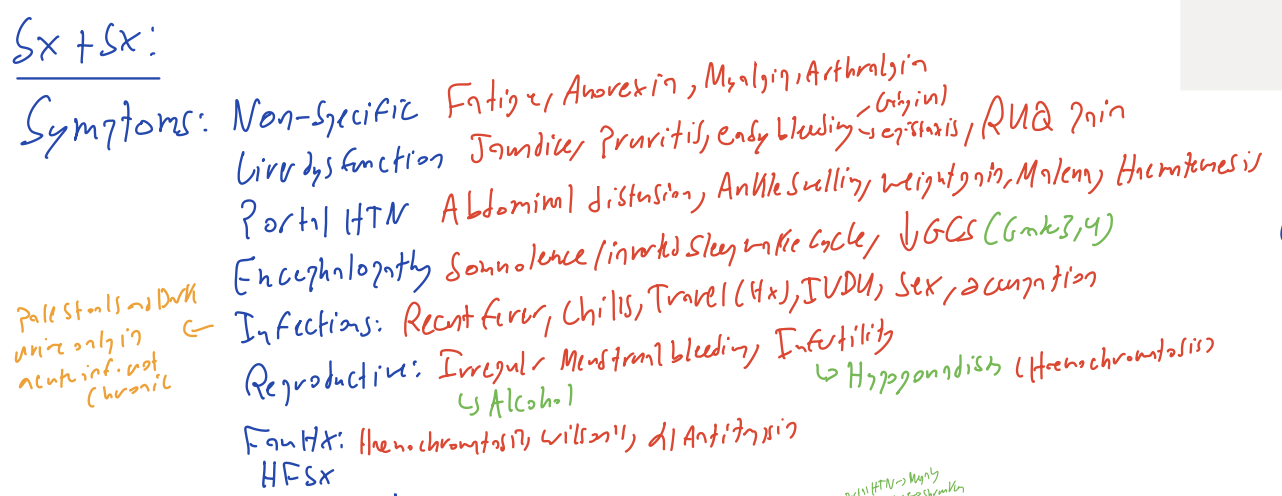 Sx + Sx:
Symptoms: Non-specific Fatigue, Anorexia, Myalgia, Arthralgia
Liver dysfunction Jaundice, Pruritis, easy bleeding → Gingival → epistaxis, RUQ pain
Portal HTN Abdominal distension, Ankle swelling, weight gain, Malena, Haematemesis
Encephalopathy Somnolence/inverted sleep wake cycle, ↓GCS (Grade 3,4)
Infections: Recent fever, Chills, Travel (Hx), IVDU, Sex, occupation
Pale stools and Dark
urine only in
acute inf. not
Chronic
Reproductive: Irregular Menstrual bleeding, Infertility
↳ Alcohol
↳ Hypogonadism (Haemochromatosis)
Fam Hx: Haemochromatosis, Wilson's, α1 Antitrypsin
HFSx